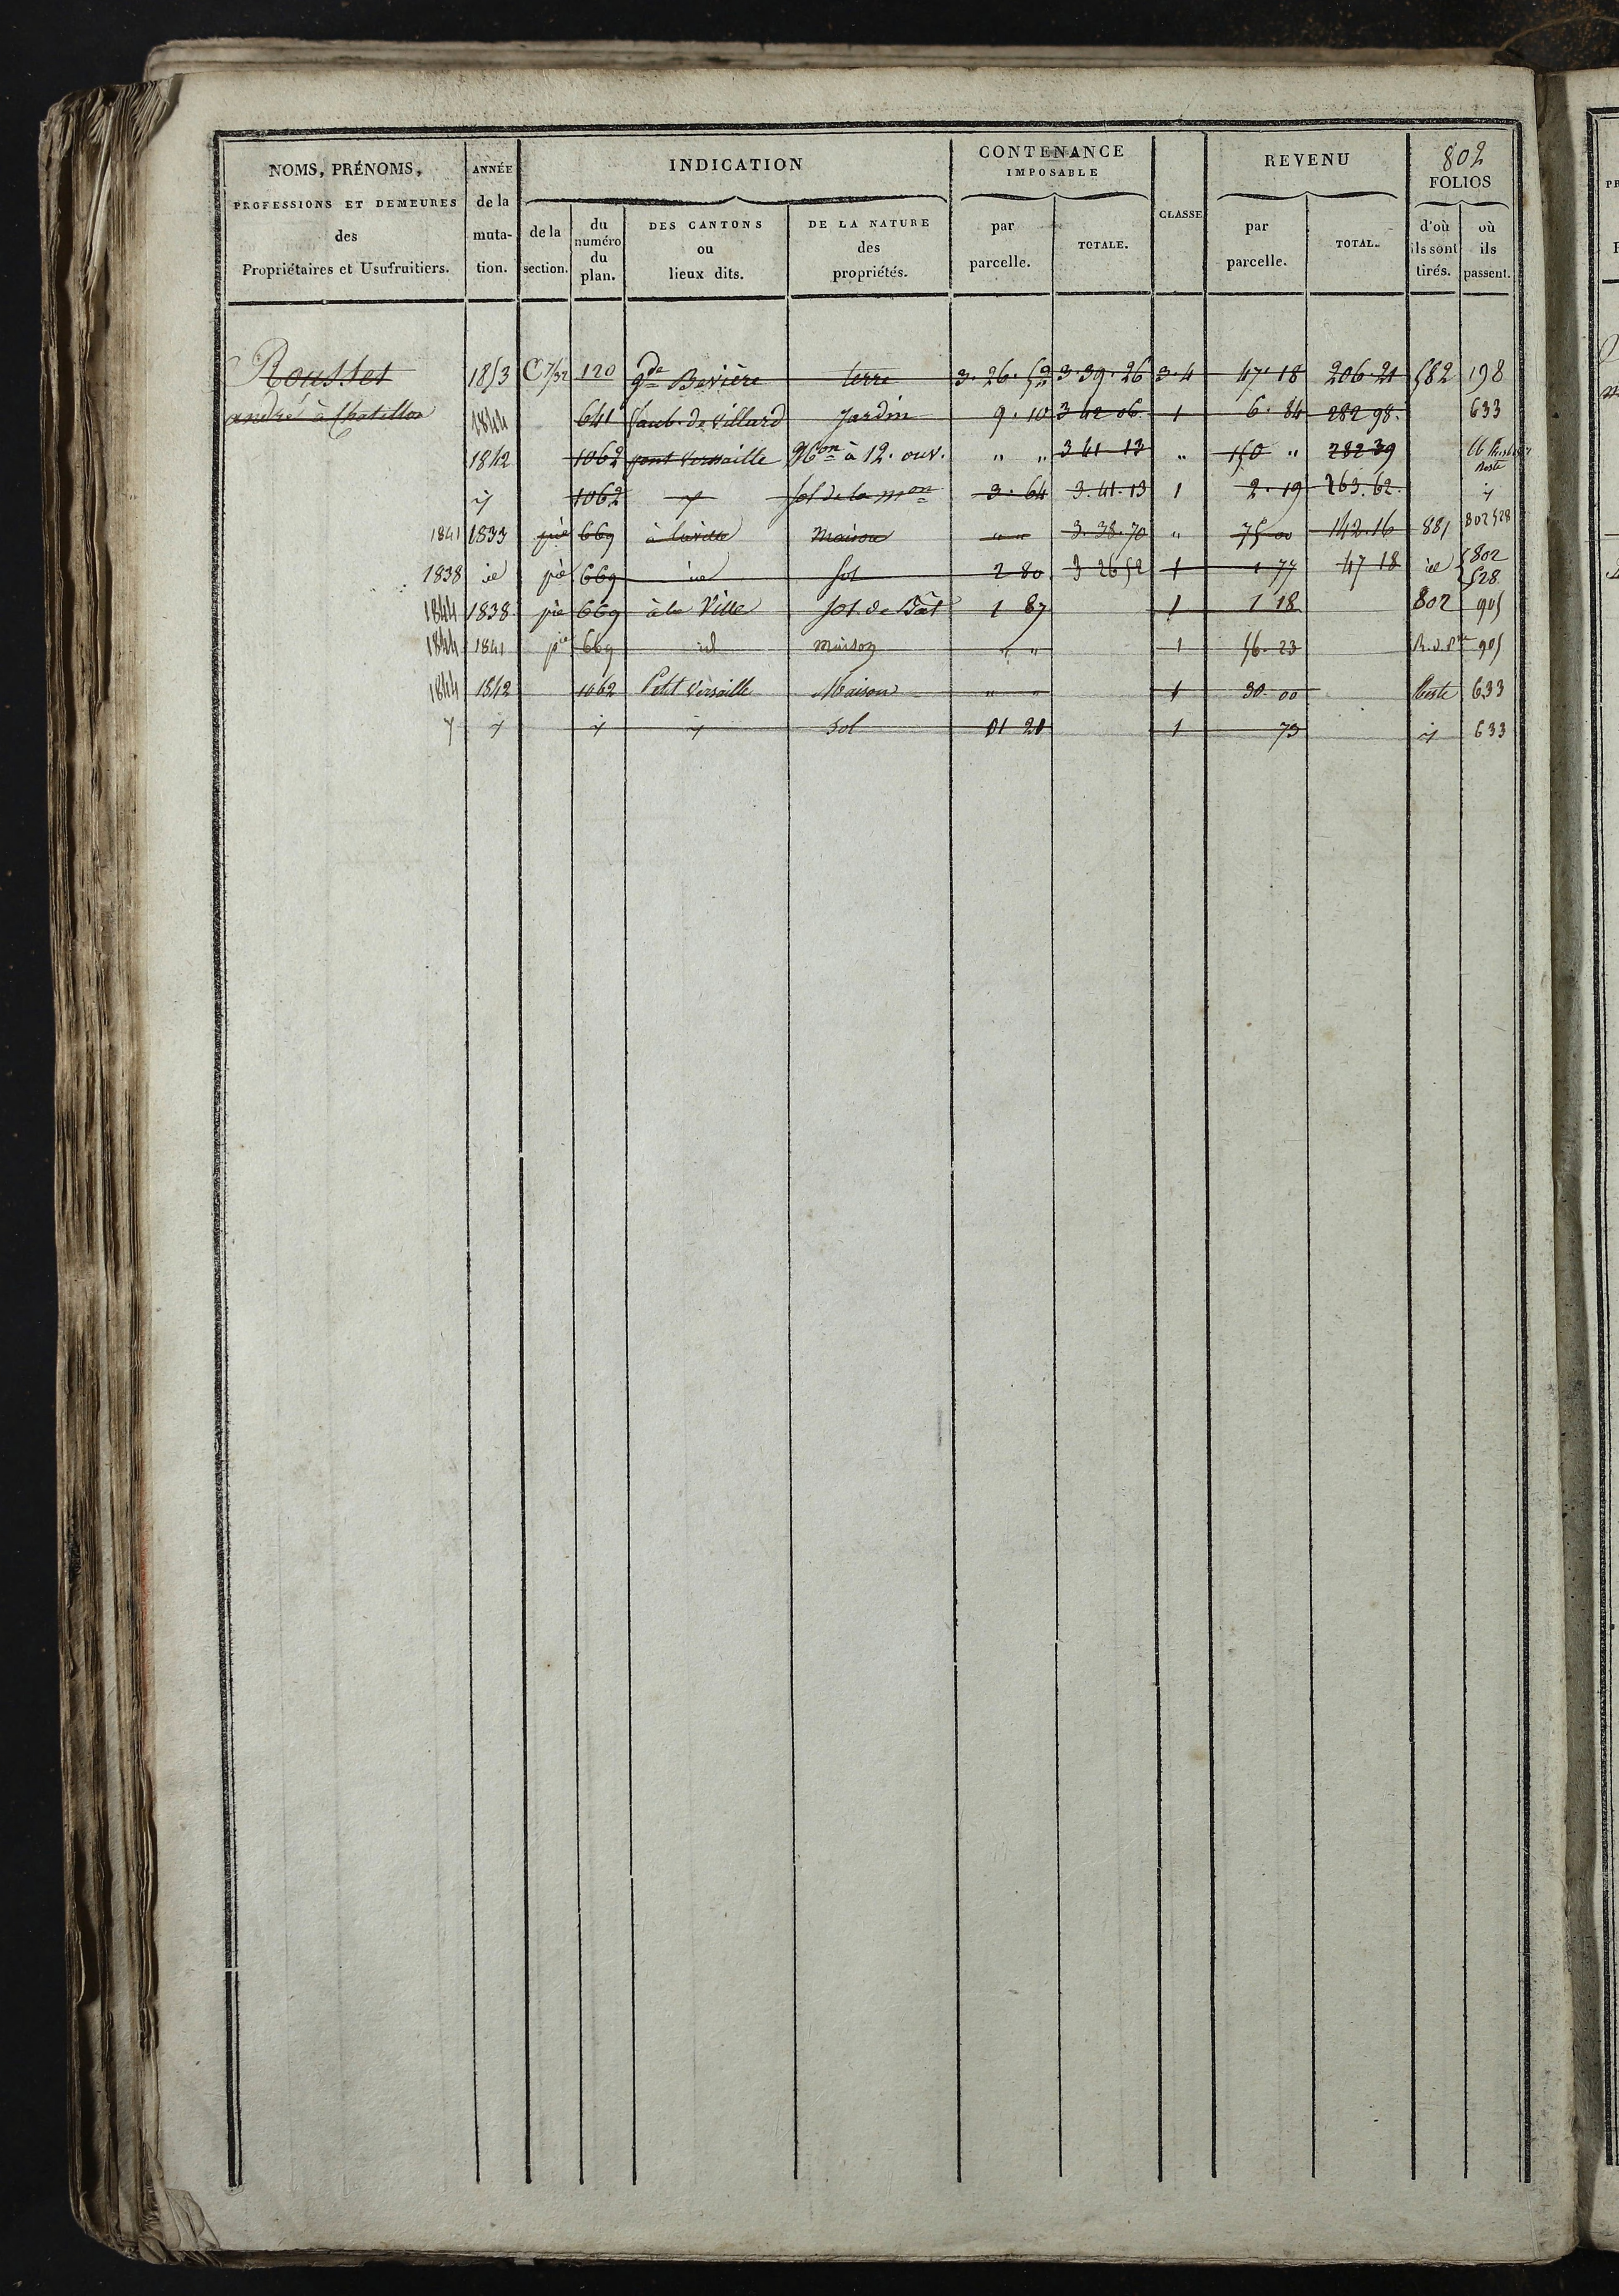 802
NOMS, PRÉNOMS, PROFESSIONS ET DEMEURES des Propriétaires et Usufruitiers.
ANNÉE de la muta-tion.
INDICATION
de la section.
du numéro du plan.
DES CANTONS ou lieux dits.
DE LA NATURE des propriétés.
CONTENANCE IMPOSABLE
par parcelle.
TOTALE.
CLASSE
REVENU
par parcelle.
TOTAL.
FOLIOS
d'où ils sont tirés.
où ils passent.
Rousset 1853 C 120 gde Bevière terre 3. 26. 52 3. 39. 26 3. 4 47. 18 206. 21 582 198
andré à Chatillon 1844 641 faub. de Villard Jardin 9. 10 3 42 06. 1 6. 84 282 98. 633
1842 1062 pont Versaille Mon à 12. ouv. " " 3 41 13 " 150 " 282 39
y 1062 y sol de la mon 3. 64 3. 41. 13 1 2. 19 263. 62. y
1841 1833 pie 669 à la ville Maison " " 3. 38. 70 " 75 00 142. 16 881 802 528
1838 id pie 669 id sol 2 80 3 26 52 1 1 77 47 18 id 802 528
1844 1838 pie 669 à la Ville sol. de Bât 1 87 1 1 18 802 905
1844 1841 pie 669 id maison " " 1 56. 23 905
1844 1842 1062 Petit Versaille Maison " " 1 30. 00 Reste 633
y y y y Sol 01 20 1 73 y 633